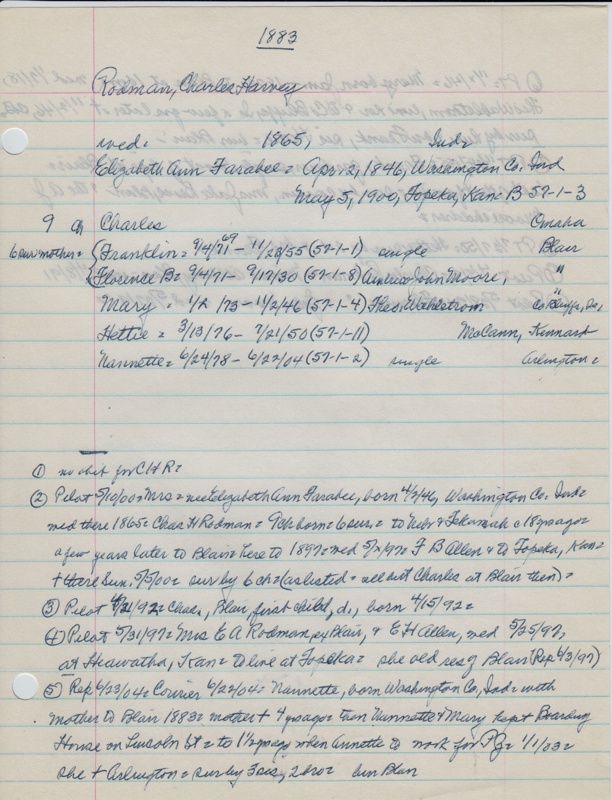 1883
Rodman, Charles Harvey
wed = 1865, Ind =
Elizabeth Ann Farabee = Apr 2, 1846, Washington Co. Ind
May 5, 1900, Topeka, Kan = B 57-1-3
9 ch Charles Omaha
6 sur mother = Franklin = 9/4/71 69 - 11/28/55 (57-1-1) single Blair
Florence B = 9/4/71 - 9/17/30 (57-1-8) John Moore, "
Mary = 1/2 /73 - 11/2/46 (57-1-4) Theo. Wahlstrom Co Bluffs, Ia
Hettie = 3/13/76 - 7/21/50 (57-1-11) McCann, Kennard
Nannette = 6/24/78 - 6/22/04 (57-1-2) single Arlington =
① no obit for C H R =
② Pilot 5/10/00 = Mrs = nee Elizabeth Ann Farabee, born 4/2/46, Washington Co. Ind =
wed there 1865 = Chas H Rodman = 9 ch born = 6 sur. = to Nebr & Tekamah c 18 yrs ago =
a few years later to Blair = here to 1897 = wed 5/2/97 = F B Allen & to Topeka, Kan =
+ there Sun. 5/5/00 = sur by 6 ch = (as listed = all but Charles at Blair then) =
③ Pilot 4/21/92 = Chas, Blair, first child, d., born 4/15/92 =
④ Pilot 5/31/97 = Mrs E A Rodman, Blair, & E H Allen, wed 5/25/97,
at Hiawatha, Kan = to live at Topeka = she old res of Blair (Rep 6/3/97)
⑤ Rep 6/23/04 = Courier 6/22/04 = Nannette, born Washington Co, Ind = with
mother to Blair 1883 = mother + 4 yrs ago = then Nannette & Mary kept Boarding
House on Lincoln St = to 1½ yrs ago when Annette to work for = 1/1/03 =
she + Arlington = sur by 3 sis, 2 bro = bur Blair